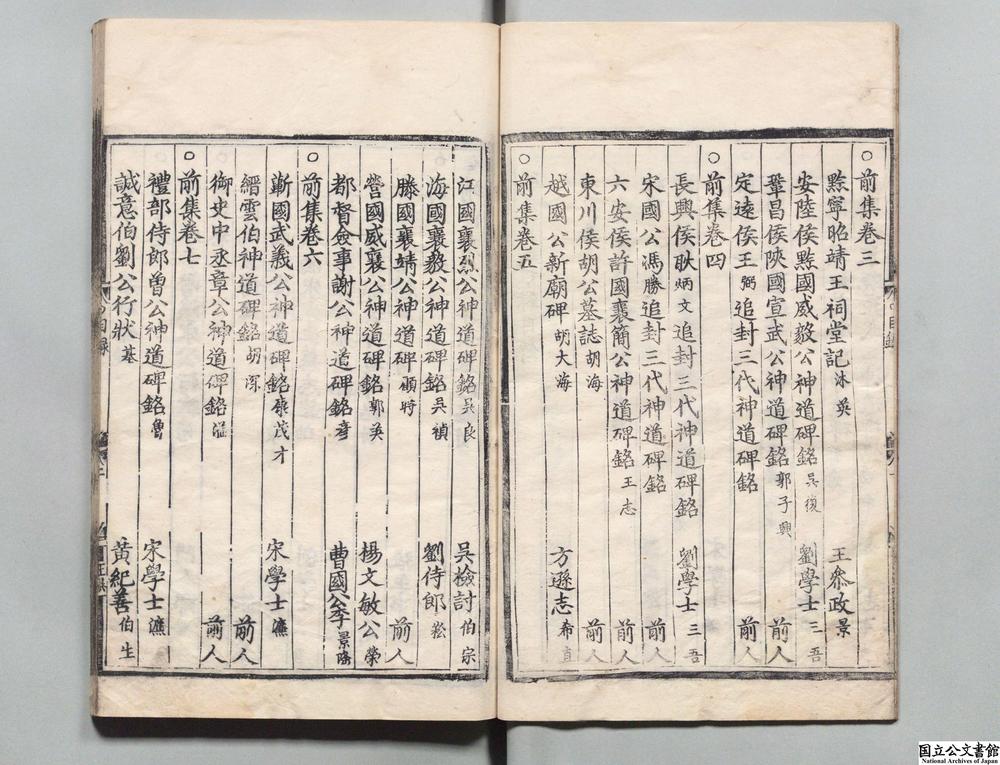 ○前集卷三
黔寧昭靖王祠堂記 沐英 王叅政 景
安陸侯黔國威毅公神道碑銘 吳復 劉學士 三吾
鞏昌侯陝國宣武公神道碑銘 郭子興 前人
定遠侯王 弼 追封三代神道碑銘 前人
○前集卷四
長興侯耿 炳文 追封三代神道碑銘 劉學士 三吾
宋國公馮 勝 追封三代神道碑銘 前人
六安侯許國襄簡公神道碑銘 王志 前人
東川侯胡公墓誌 胡海 前人
越國公新廟碑 胡大海 方遜志 希直
○前集卷五
江國襄烈公神道碑銘 吳良 吳檢討 伯宗
海國襄毅公神道碑銘 吳禎 劉侍郎 崧
滕國襄靖公神道碑 顧時 前人
營國威襄公神道碑銘 郭英 楊文敏公 榮
都督僉事謝公神道碑銘 彥 曹國公李 景隆
○前集卷六
蘄國武義公神道碑銘 康茂才 宋學士 濂
縉雲伯神道碑銘 胡深 前人
御史中丞章公神道碑銘 溢 前人
○前集卷七
禮部侍郎曾公神道碑銘 魯 宋學士 濂
誠意伯劉公行狀 基 黃紀善 伯生
目錄
国立公文書館
National Archives of Japan